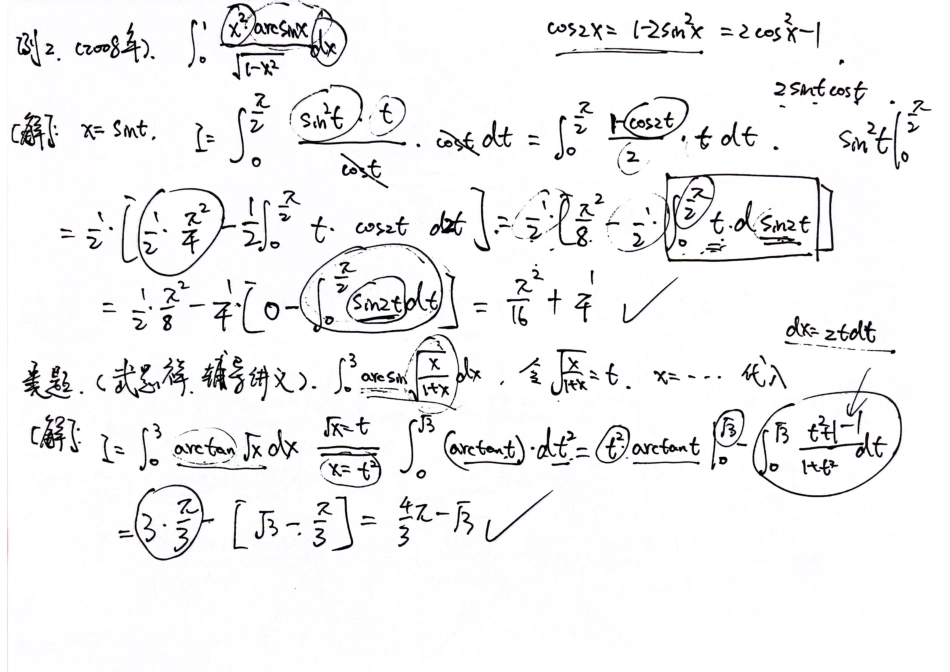 例2. (2008年). ∫₀¹ x² arcsinx / √(1-x²) dx
cos2x = 1-2sin²x = 2cos²x-1
2sint cost
[解]: x = sint, I = ∫₀^(π/2) (sin²t · t)/cost · cost dt = ∫₀^(π/2) (1-cos2t)/2 · t dt . sin²t |₀^(π/2)
= 1/2 · [1/2 · π²/4 - 1/2 ∫₀^(π/2) t · cos2t d2t] = 1/2 · [π²/8 - 1/2 · ∫₀^(π/2) t · d sin2t]
= 1/2 · π²/8 - 1/4 · [0 - ∫₀^(π/2) sin2t dt] = π²/16 + 1/4 ✓
dx = 2tdt
类题. (武忠祥. 辅导讲义). ∫₀³ arcsin √(x/(1+x)) dx, 令 √(x/(1+x)) = t. x = ···· 代入
[解]: I = ∫₀³ arctan √x dx (√x = t / x = t²) ∫₀^√3 (arctant) · dt² = t² · arctant |₀^√3 - ∫₀^√3 (t²+1-1)/(1+t²) dt
= 3 · π/3 - [√3 - π/3] = 4/3 π - √3 ✓